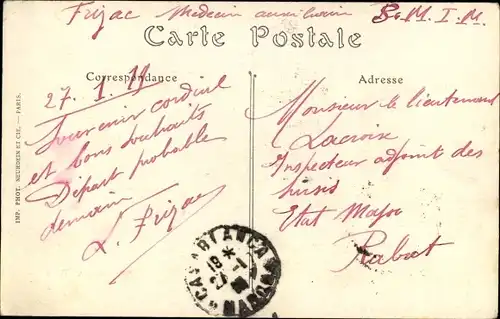 Frizac Medecin auxiliaire S. M. I. M.
Carte Postale
Correspondance
Adresse
27. 1. 
Souvenir cordial
et bons souhaits
Départ probable
demain
L. Frizac
Monsieur le lieutenant
Lacroix
Inspecteur adjoint des
Etat Major
Rabat
CASABLANCA
MAROC
IMP. PHOT. NEURDEIN ET CIE. — PARIS.